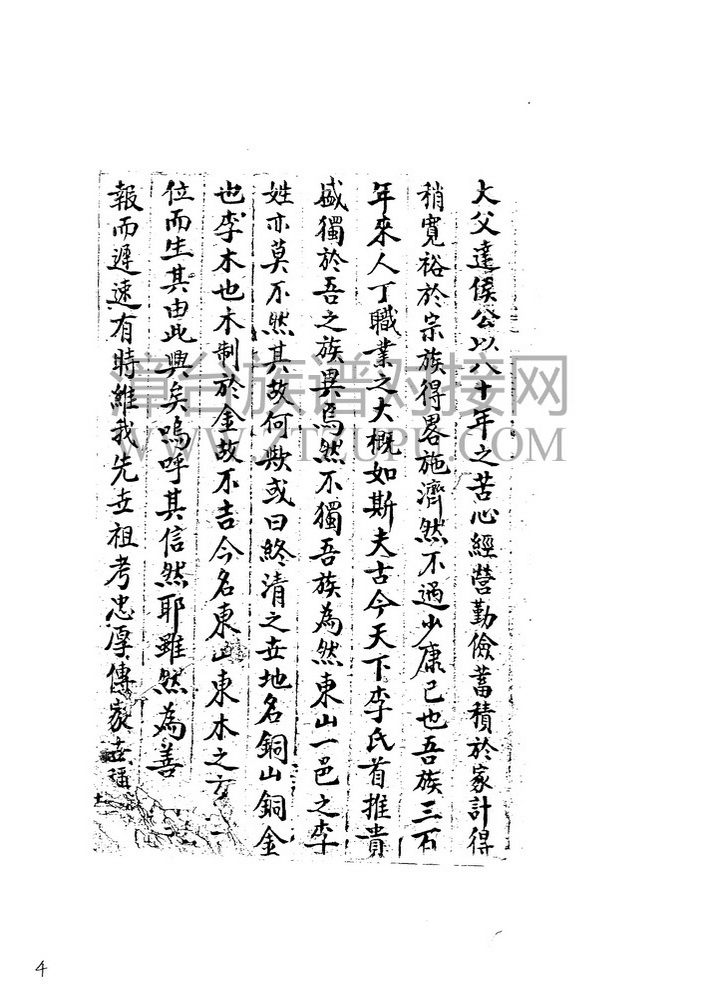 大父達侯公以八十年之苦心經營勤儉蓄積於家計得
稍寬裕於宗族得畧施濟然不過少康已也吾族三百
年來人丁職業之大概如斯夫古今天下李氏首推貴
盛獨於吾之族異焉然不獨吾族為然東山一邑之李
姓亦莫不然其故何歟或曰終清之世地名銅山銅金
也李木也木制於金故不吉今名東山東木之方
位而生其由此興矣嗚呼其信然耶雖然為善
報而遲速有時維我先世祖考忠厚傳家世
漳台族谱对接网
WWW.ZTZUPU.COM
4